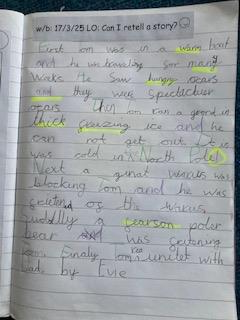 w/b: 17/3/25 LO: Can I retell a story?
First tom was in a warm boat
and he was traveling for many
Weeks. He Saw hungry ocars
and they were Spectaculer
ocars Then tom ran a grond in
thick freezing ice and he
can not get out. It is
was cold in North Pole
Next a giant walrus was
blocking tom and he was
of the walrus.
a poler
bear and was
tom. Finally tom unitet with
Dad. by Evie